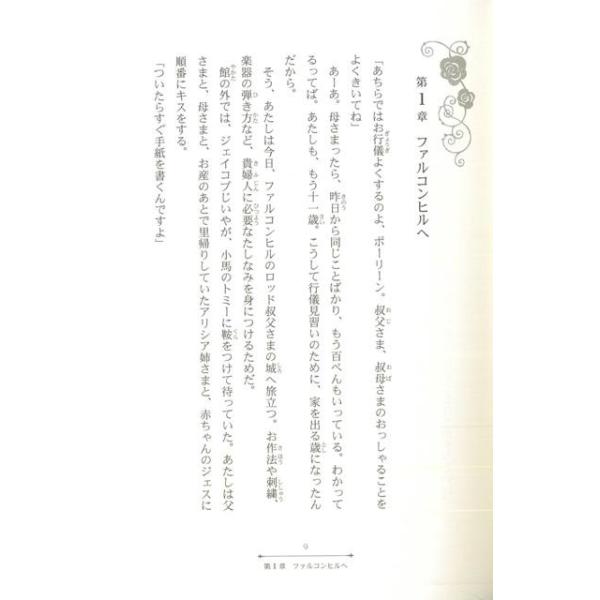 第1章 ファルコンヒルへ
「あちらではお行儀よくするのよ、ポーリーン。叔父さま、叔母さまのおっしゃることを
よくきいてね」
あーあ。母さまったら、昨日から同じことばかり、もう百ぺんもいっている。わかって
るってば。あたしも、もう十一歳。こうして行儀見習いのために、家を出る歳になったん
だから。
そう、あたしは今日、ファルコンヒルのロッド叔父さまの城へ旅立つ。お作法や刺繍、
楽器の弾き方など、貴婦人に必要なたしなみを身につけるためだ。
館の外では、ジェイコブじいやが、小馬のトミーに鞍をつけて待っていた。あたしは父
さまと、母さまと、お産のあとで里帰りしていたアリシア姉さまと、赤ちゃんのジェスに
順番にキスをする。
「ついたらすぐ手紙を書くんですよ」
9
第1章 ファルコンヒルへ